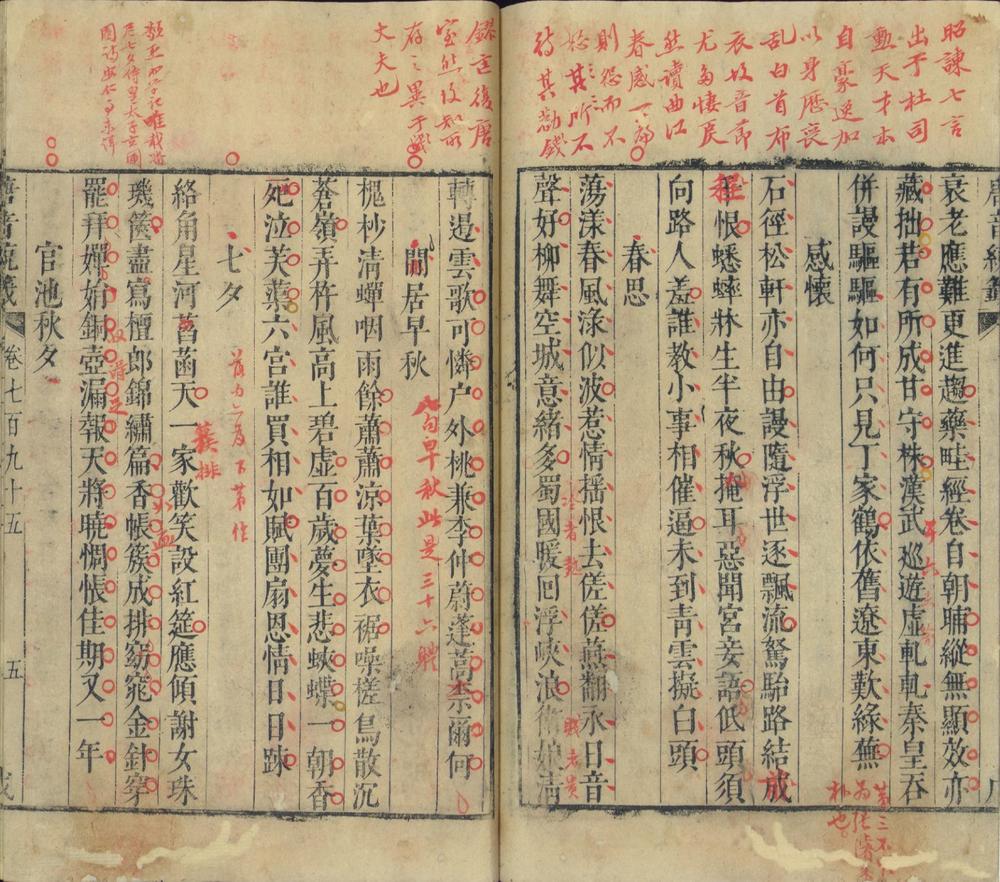 昭諫七言
出于杜司
勳天才本
自豪逸加
以身歷喪
乱白首布
衣故音節
尤多悽戾
然讀曲江
春感一篇
則怨而不
怒其所不
待其勸錢
衰老應難更進趨藥畦經卷自朝晡縱無顯效亦
藏拙若有所成甘守株漢武巡遊虛軋軋秦皇吞
併謾驅驅如何只見丁家鶴依舊遼東歎綠蕪
感懷
石徑松軒亦自由謾隨浮世逐飄流駑駘路結成
程恨蟋蟀牀生半夜秋掩耳惡聞宮妾語低頭須
向路人羞誰教小事相催逼未到青雲擬白頭
春思
蕩漾春風淥似波惹情搖恨去傞傞燕翻永日音
聲好柳舞空城意緒多蜀國暖回浮峽浪衛娘清
鏐言後唐
室然後知所
存之異于纖
丈夫也
轉遏雲歌可憐户外桃兼李仲蔚蓬蒿柰爾何
閒居早秋
八句早秋此是三十六體
槐杪清蟬咽雨餘蕭蕭涼葉墜衣裾噪槎烏散沉
蒼嶺弄杵風高上碧虛百歲夢生悲蛺蝶一朝香
死泣芙蕖六宮誰買相如賦團扇恩情日日踈
七夕
絡角星河菡萏天一家歡笑設紅筵應傾謝女珠
璣篋盡寫檀郎錦繡篇香帳簇成排窈窕金針穿
罷拜嬋娟銅壺漏報天將曉惆悵佳期又一年
官池秋夕
卷七百九十五
五